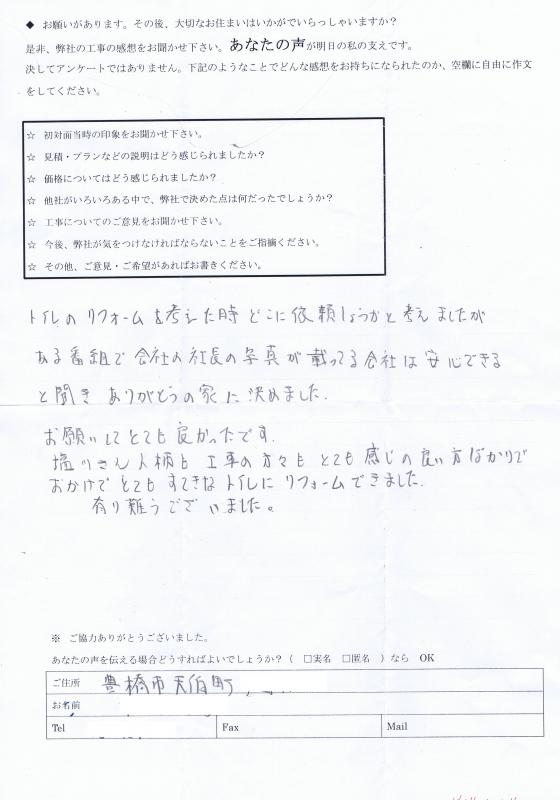 ◆ お願いがあります。その後、大切なお住まいはいかがでいらっしゃいますか？
是非、弊社の工事の感想をお聞かせ下さい。あなたの声が明日の私の支えです。
決してアンケートではありません。下記のようなことでどんな感想をお持ちになられたのか、空欄に自由に作文
をしてください。
☆ 初対面当時の印象をお聞かせ下さい。
☆ 見積・プランなどの説明はどう感じられましたか？
☆ 価格についてはどう感じられましたか？
☆ 他社がいろいろある中で、弊社で決めた点は何だったでしょうか？
☆ 工事についてのご意見をお聞かせ下さい。
☆ 今後、弊社が気をつけなければならないことをご指摘ください。
☆ その他、ご意見・ご希望があればお書きください。
トイレのリフォームを考えた時どこに依頼しようかと考えましたが
ある番組で会社の社長の写真が載ってる会社は安心できる
と聞きありがとうの家に決めました.
お願いしてとても良かったです.
塩川さん人柄も工事の方々もとても感じの良い方ばかりで
おかげでとてもすてきなトイレにリフォームできました.
有り難うございました。
※ ご協力ありがとうございました。
あなたの声を伝える場合どうすればよいでしょうか？（ □実名 □匿名 ）なら OK
ご住所 豊橋市天伯町
お名前
Tel Fax Mail